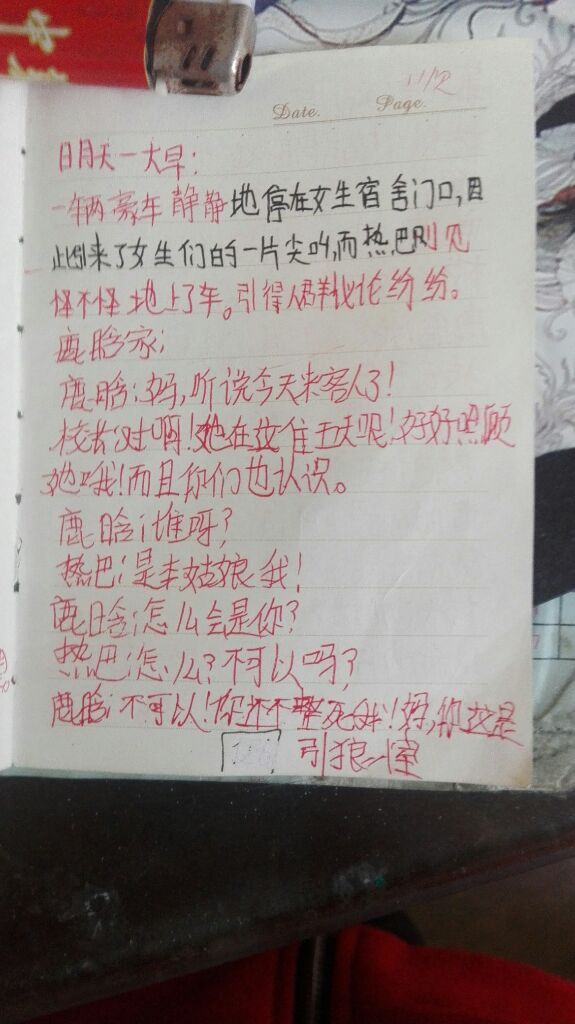 中华
Date. Page.
11页
明天一大早:
一辆豪车静静地停在女生宿舍门口,因
此引来了女生们的一片尖叫,而热巴则见
怪不怪地上了车。引得人群议论纷纷。
鹿晗家:
鹿晗:妈,听说今天来客人了!
校长:对啊!她在这住五天呢!好好照顾
她哦!而且你们也认识。
鹿晗:谁呀?
热巴:是本姑娘我!
鹿晗:怎么会是你?
热巴:怎么?不可以吗?
鹿晗:不可以!你还不整死我!妈,你这是
引狼入室